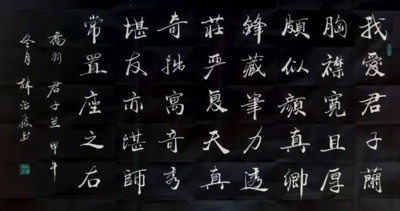 我愛君子蘭
胸襟寬且厚
頗似顏真卿
鋒藏筆力透
莊严复天真
奇拙寓奇秀
堪友亦堪師
常置座之右
喬羽 君子兰 甲午
冬月 林治波书